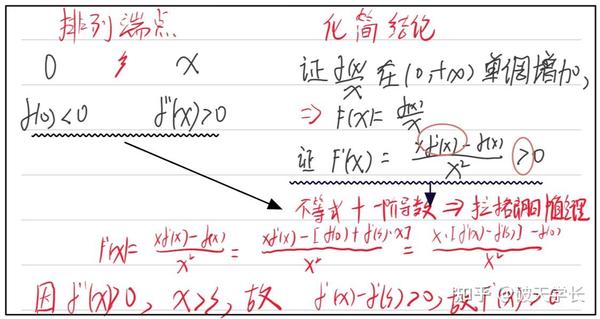 排列端点
0 ξ x
f(0)<0 f''(x)>0
化简结论
证 f(x)/x 在(0,+∞)单调增加,
⇒ F(x)= f(x)/x
证 F'(x) = (xf'(x)-f(x))/x² >0
不等式+一阶导数⇒拉格朗日中值定理
F'(x)= (xf'(x)-f(x))/x² = (xf'(x)-[f(0)+f'(ξ)·x])/x² = (x·[f'(x)-f'(ξ)]-f(0))/x²
因f''(x)>0, x>ξ, 故 f'(x)-f'(ξ)>0, 故F'(x)>0
知乎 @破天学长